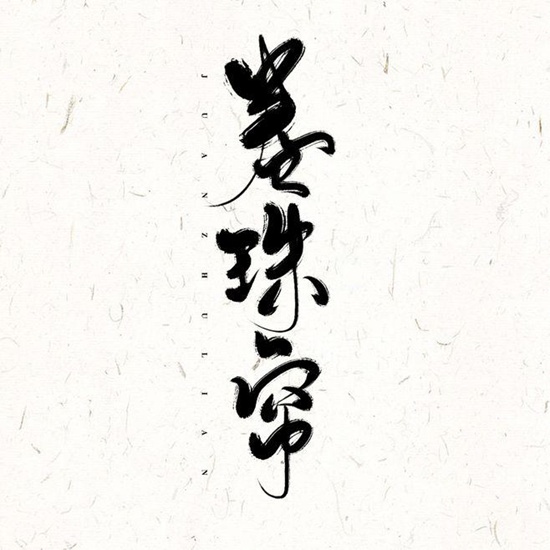 卷珠帘
JUANZHULIAN